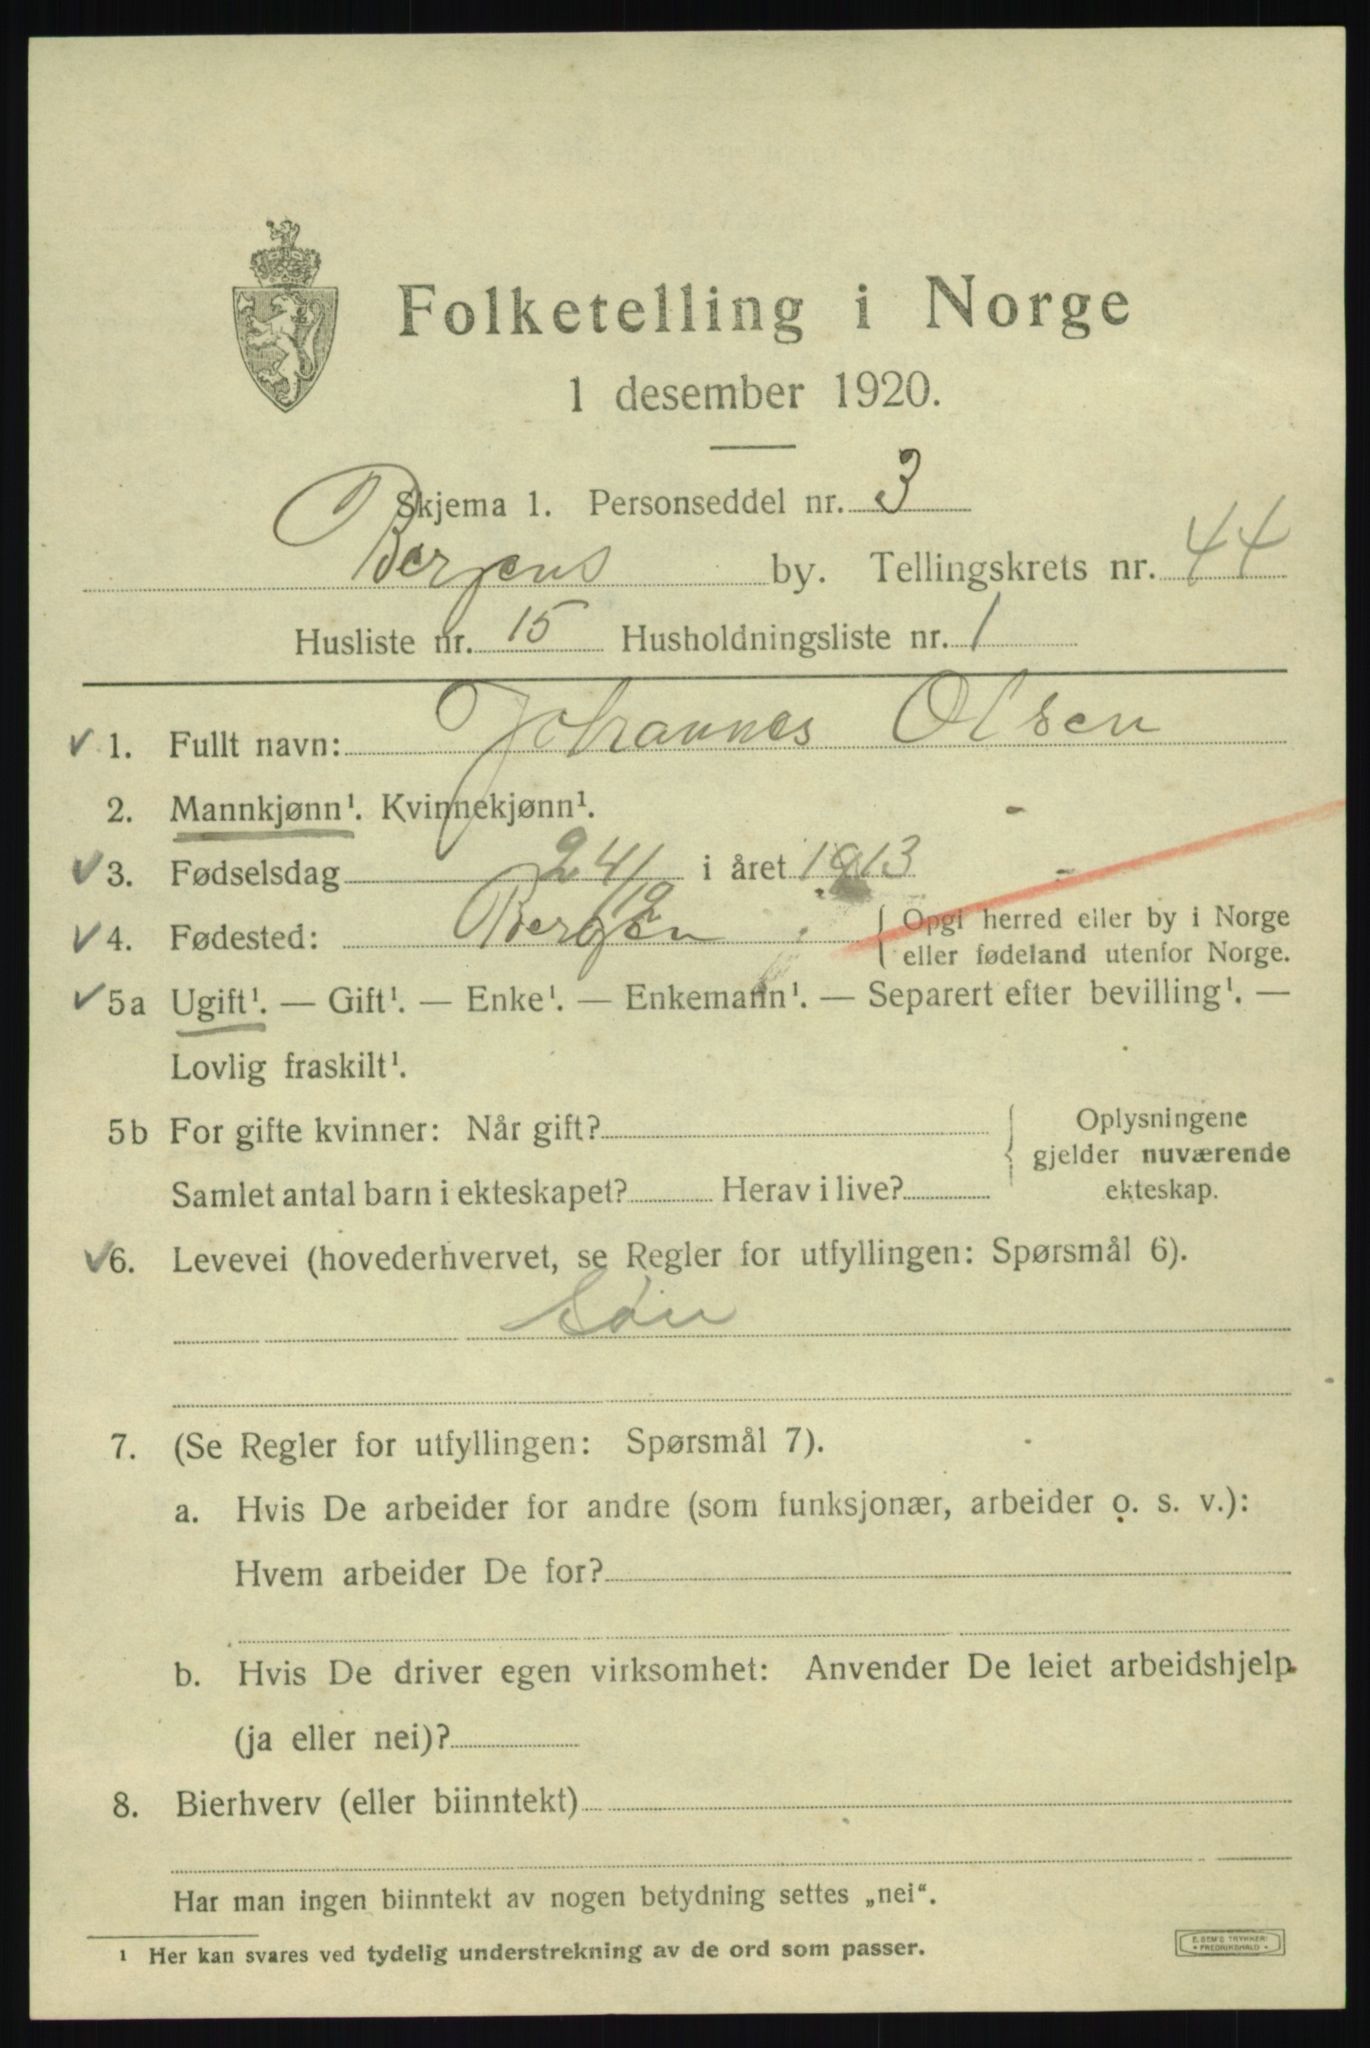 Folketelling i Norge
1 desember 1920.
Skjema 1. Personseddel nr. 3
Bergens by. Tellingskrets nr. 44
Husliste nr. 15 Husholdningsliste nr. 1
✓ 1. Fullt navn: Johannes Olsen
2. Mannkjønn¹. Kvinnekjønn¹.
✓ 3. Fødselsdag 24/12 i året 1913
✓ 4. Fødested: Bergen { Opgi herred eller by i Norge
eller fødeland utenfor Norge.
✓ 5a Ugift¹. — Gift¹. — Enke¹. — Enkemann¹. — Separert efter bevilling¹. —
Lovlig fraskilt¹.
5b For gifte kvinner: Når gift? { Oplysningene
gjelder nuværende
Samlet antal barn i ekteskapet? Herav i live? ekteskap.
✓ 6. Levevei (hovederhvervet, se Regler for utfyllingen: Spørsmål 6).
Søn
7. (Se Regler for utfyllingen: Spørsmål 7).
a. Hvis De arbeider for andre (som funksjonær, arbeider o. s. v.):
Hvem arbeider De for?
b. Hvis De driver egen virksomhet: Anvender De leiet arbeidshjelp
(ja eller nei)?
8. Bierhverv (eller biinntekt)
Har man ingen biinntekt av nogen betydning settes „nei“.
¹ Her kan svares ved tydelig understrekning av de ord som passer.
E. SEM'S TRYKKERI
• FREDRIKSHALD •